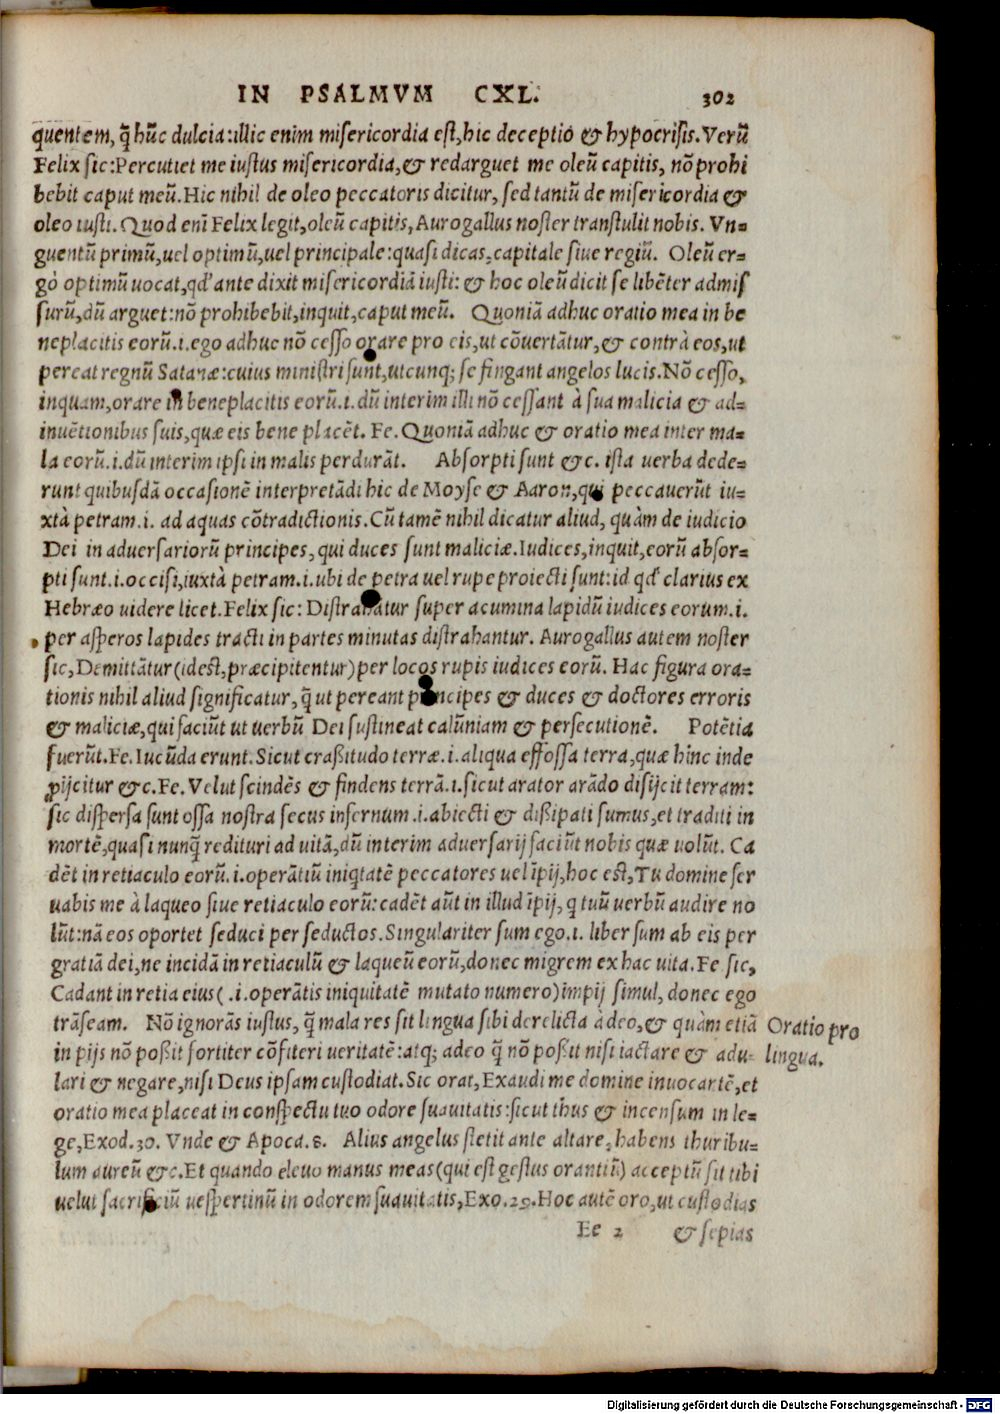 IN PSALMVM CXL. 302
quentem, q̃ hũc dulcia: illic enim misericordia est, hic deceptio & hypocrisis. Verũ
Felix sic: Percutiet me iustus misericordia, & redarguet me oleũ capitis, nõ prohi
bebit caput meũ. Hic nihil de oleo peccatoris dicitur, sed tantũ de misericordia &
oleo iusti. Quod enĩ Felix legit, oleũ capitis, Aurogallus noster transtulit nobis. Vn=
guentũ primũ, uel optimũ, uel principale: quasi dicas, capitale siue regiũ. Oleũ er=
gò optimũ uocat, qđ ante dixit misericordiã iusti: & hoc oleũ dicit se libẽter admis
surũ, dũ arguet: nõ prohibebit, inquit, caput meũ. Quoniã adhuc oratio mea in be
neplacitis eorũ .i. ego adhuc nõ cesso orare pro eis, ut cõuertãtur, & contrà eos, ut
pereat regnũ Satanæ: cuius ministri sunt, utcunq; se fingant angelos lucis. Nõ cesso,
inquam, orare in beneplacitis eorũ .i. dũ interim illi nõ cessant à sua malicia & ad=
inuẽtionibus suis, quæ eis bene placẽt. Fe. Quoniã adhuc & oratio mea inter ma=
la eorũ .i. dũ interim ipsi in malis perdurãt. Absorpti sunt &c. ista uerba dede=
runt quibusdã occasionẽ interpretãdi hic de Moyse & Aaron, qui peccauerũt iu=
xtà petram .i. ad aquas cõtradictionis. Cũ tamẽ nihil dicatur aliud, quàm de iudicio
Dei in aduersariorũ principes, qui duces sunt maliciæ. Iudices, inquit, eorũ absor=
pti sunt .i. occisi, iuxtà petram .i. ubi de petra uel rupe proiecti sunt: id qđ clarius ex
Hebræo uidere licet. Felix sic: Distrahatur super acumina lapidũ iudices eorum .i.
per asperos lapides tracti in partes minutas distrahantur. Aurogallus autem noster
sic, Demittãtur (idest, præcipitentur) per locos rupis iudices eorũ. Hac figura ora=
tionis nihil aliud significatur, q̃ ut pereant principes & duces & doctores erroris
& maliciæ, qui faciũt ut uerbũ Dei sustineat calũniam & persecutionẽ. Potẽtia
fuerũt. Fe. Iucũda erunt. Sicut craßitudo terræ .i. aliqua effossa terra, quæ hinc inde
ꝓijcitur &c. Fe. Velut scindẽs & findens terrã .i. sicut arator arãdo disijcit terram:
sic dispersa sunt ossa nostra secus infernum .i. abiecti & dißipati sumus, et traditi in
mortẽ, quasi nunq̃ redituri ad uitã, dũ interim aduersarij faciũt nobis quæ uolũt. Ca
dẽt in retiaculo eorũ .i. operãtiũ iniq̃tatẽ peccatores uel ĩpij, hoc est, Tu domine ser
uabis me à laqueo siue retiaculo eorũ: cadẽt aũt in illud ĩpij, q tuũ uerbũ audire no
lũt: nã eos oportet seduci per seductos. Singulariter sum ego .i. liber sum ab eis per
gratiã dei, ne incidã in retiaculũ & laqueũ eorũ, donec migrem ex hac uita. Fe sic,
Cadant in retia eius ( .i. operãtis iniquitatẽ mutato numero) impij simul, donec ego
trãseam. Nõ ignorãs iustus, q̃ mala res sit lingua sibi derelicta àdeo, & quàm etiã
in pijs nõ poßit fortiter cõfiteri ueritatẽ: atq; adeo q̃ nõ poßit nisi iactare & adu=
lari & negare, nisi Deus ipsam custodiat. Sic orat, Exaudi me domine inuocartẽ, et
oratio mea placeat in conspectu tuo odore suauitatis: sicut thus & incensum in le=
ge, Exod. 30. Vnde & Apoca. 8. Alius angelus stetit ante altare, habens thuribu=
lum aureũ &c. Et quando eleuo manus meas (qui est gestus orantiũ) acceptũ sit tibi
uelut sacrificiũ uespertinũ in odorem suauitatis, Exo. 29. Hoc autẽ oro, ut custodias
Ee 2 & sepias
Oratio pro
lingua.
Digitalisierung gefördert durch die Deutsche Forschungsgemeinschaft - DFG